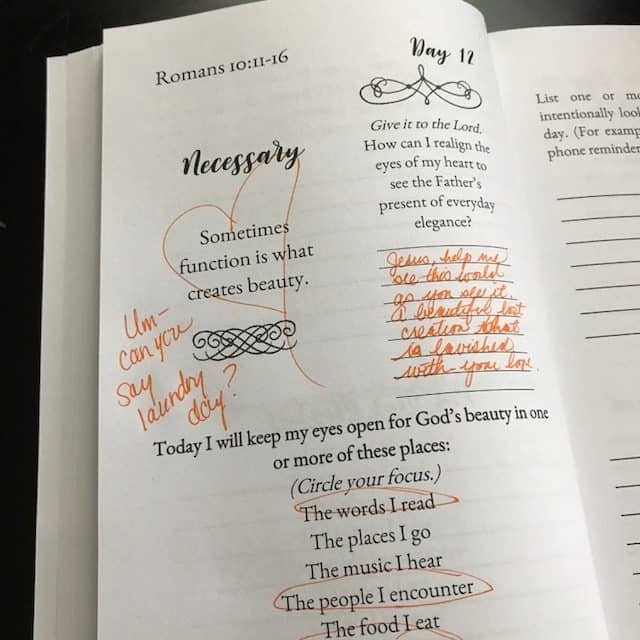 Romans 10:11-16
Day 12
Necessary
Sometimes
function is what
creates beauty.
Um-
can you
say
laundry
day?
Give it to the Lord.
How can I realign the
eyes of my heart to
see the Father's
present of everyday
elegance?
Jesus, help me
see this world
as you see it.
A beautiful lost
creation that
is lavished
with your love.
Today I will keep my eyes open for God's beauty in one
or more of these places:
(Circle your focus.)
The words I read
The places I go
The music I hear
The people I encounter
The food I eat
List one or
intentionally
day. (For
phone reminder